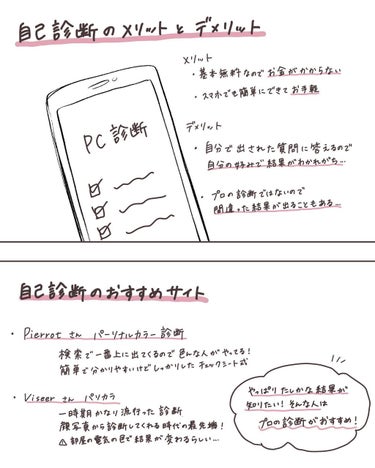 自己診断のメリットとデメリット
メリット
・基本無料なのでお金がかからない
・スマホでも簡単にできてお手軽
PC診断
デメリット
・自分で出された質問に答えるので
自分の好みで結果がわかれがち…
・プロの診断ではないので
間違った結果が出ることもある…
自己診断のおすすめサイト
・Pierrotさん パーソナルカラー診断
検索で一番上に出てくるので色んな人がやってる!
簡単で分かりやすいけどしっかりしたチェックシート式
・Viseerさん パリカラ
一時期かなり流行った診断
顔写真から診断してくれる時代の最先端!
⚠部屋の電気の色で結果が変わるらしい…
やっぱりたしかな結果が
知りたい!そんな人は
プロの診断がおすすめ!